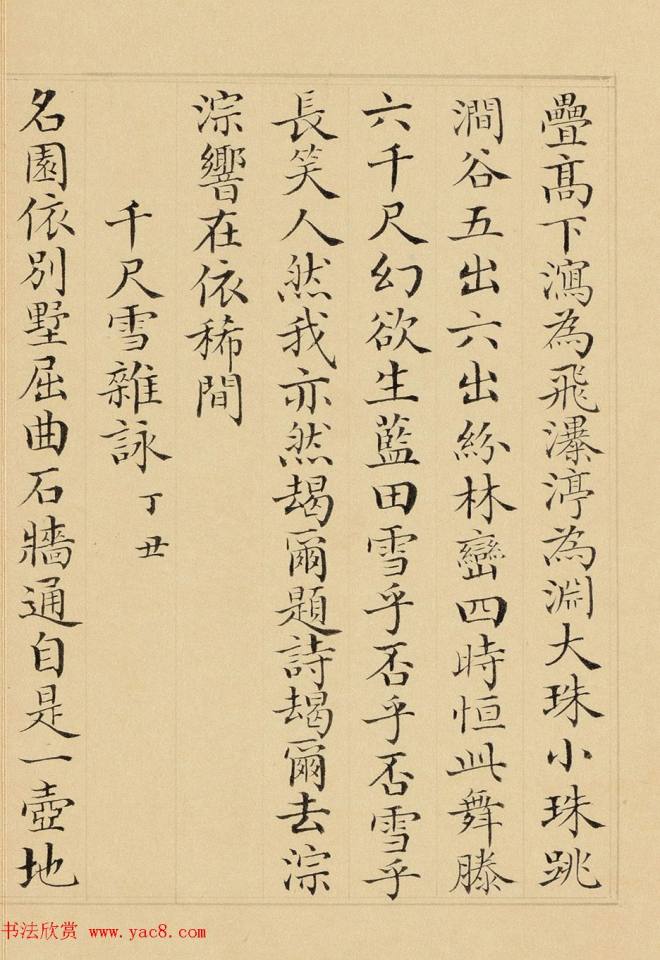 疊髙下瀉為飛瀑渟為淵大珠小珠跳
澗谷五出六出紛林巒四時恒此舞滕
六千尺幻欲生藍田雪乎否乎否雪乎
長笑人然我亦然朅爾題詩朅爾去淙
淙響在依稀間
千尺雪雜詠 丁丑
名園依别墅屈曲石牆通自是一壺地
书法欣赏 www.yac8.com